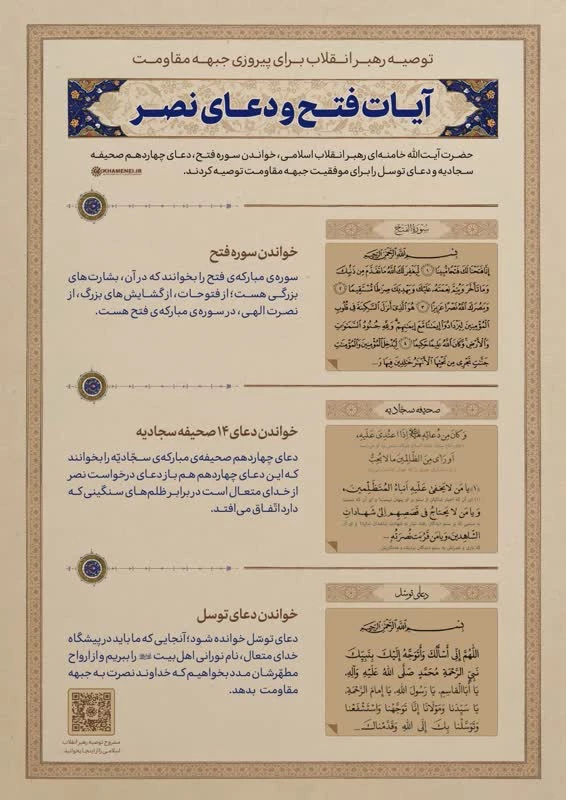 توصیه رهبر انقلاب برای پیروزی جبهه مقاومت
آیات فتح و دعای نصر
حضرت آیت‌الله خامنه‌ای رهبر انقلاب اسلامی، خواندن سوره فتح، دعای چهاردهم صحیفه
سجادیه و دعای توسل را برای موفقیت جبهه مقاومت توصیه کردند.
KHAMENEI.IR
سورة الفتح
خواندن سوره فتح
سوره‌ی مبارکه‌ی فتح را بخوانند که در آن، بشارت‌های
بزرگی هست؛ از فتوحات، از گشایش‌های بزرگ، از
نصرت الهی، در سوره‌ی مبارکه‌ی فتح هست.
بسم الله الرحمن الرحیم
إِنَّا فَتَحْنَا لَكَ فَتْحًا مُبِينًا ١ لِيَغْفِرَ لَكَ اللَّهُ مَا تَقَدَّمَ مِنْ ذَنْبِكَ
وَمَا تَأَخَّرَ وَيُتِمَّ نِعْمَتَهُ عَلَيْكَ وَيَهْدِيَكَ صِرَاطًا مُسْتَقِيمًا ٢
وَيَنْصُرَكَ اللَّهُ نَصْرًا عَزِيزًا ٣ هُوَ الَّذِي أَنْزَلَ السَّكِينَةَ فِي قُلُوبِ
الْمُؤْمِنِينَ لِيَزْدَادُوا إِيمَانًا مَعَ إِيمَانِهِمْ وَلِلَّهِ جُنُودُ السَّمَاوَاتِ
وَالْأَرْضِ وَكَانَ اللَّهُ عَلِيمًا حَكِيمًا ٤ لِيُدْخِلَ الْمُؤْمِنِينَ وَالْمُؤْمِنَاتِ
جَنَّاتٍ تَجْرِي مِنْ تَحْتِهَا الْأَنْهَارُ خَالِدِينَ فِيهَا وَ...
صحیفه سجادیه
خواندن دعای ۱۴ صحیفه سجادیه
دعای چهاردهم صحیفه‌ی مبارکه‌ی سجّادیّه را بخوانند
که این دعای چهاردهم هم باز دعای درخواست نصر
از خدای متعال است در برابر ظلم‌های سنگینی که
دارد اتّفاق می‌افتد.
وَ كَانَ مِنْ دُعَائِهِ إِذَا اعْتُدِيَ عَلَيْهِ،
أَوْ رَأَى مِنَ الظَّالِمِينَ مَا لَا يُحِبُّ
(۱) يَا مَنْ لَا يَخْفَى عَلَيْهِ أَنْبَاءُ الْمُتَظَلِّمِينَ،
وَ يَا مَنْ لَا يَحْتَاجُ فِي قَصَصِهِمْ إِلَى شَهَادَاتِ
الشَّاهِدِينَ، وَ يَا مَنْ قَرُبَتْ نُصْرَتُهُ ...
دعای توسّل
خواندن دعای توسل
دعای توسّل خوانده شود؛ آنجایی که ما باید در پیشگاه
خدای متعال، نام نورانی اهل بیت را ببریم و از ارواح
مطهّرشان مدد بخواهیم که خداوند نصرت به جبهه
مقاومت بدهد.
بسم الله الرحمن الرحیم
اللَّهُمَّ إِنِّي أَسْأَلُكَ وَأَتَوَجَّهُ إِلَيْكَ بِنَبِيِّكَ
نَبِيِّ الرَّحْمَةِ مُحَمَّدٍ صَلَّى اللَّهُ عَلَيْهِ وَآلِهِ،
يَا أَبَا الْقَاسِمِ، يَا رَسُولَ اللَّهِ، يَا إِمَامَ الرَّحْمَةِ،
يَا سَيِّدَنَا وَمَوْلَانَا إِنَّا تَوَجَّهْنَا وَاسْتَشْفَعْنَا
وَتَوَسَّلْنَا بِكَ إِلَى اللَّهِ وَقَدَّمْنَاكَ ...
مشروح توصیه رهبر انقلاب
اسلامی را از اینجا بخوانید